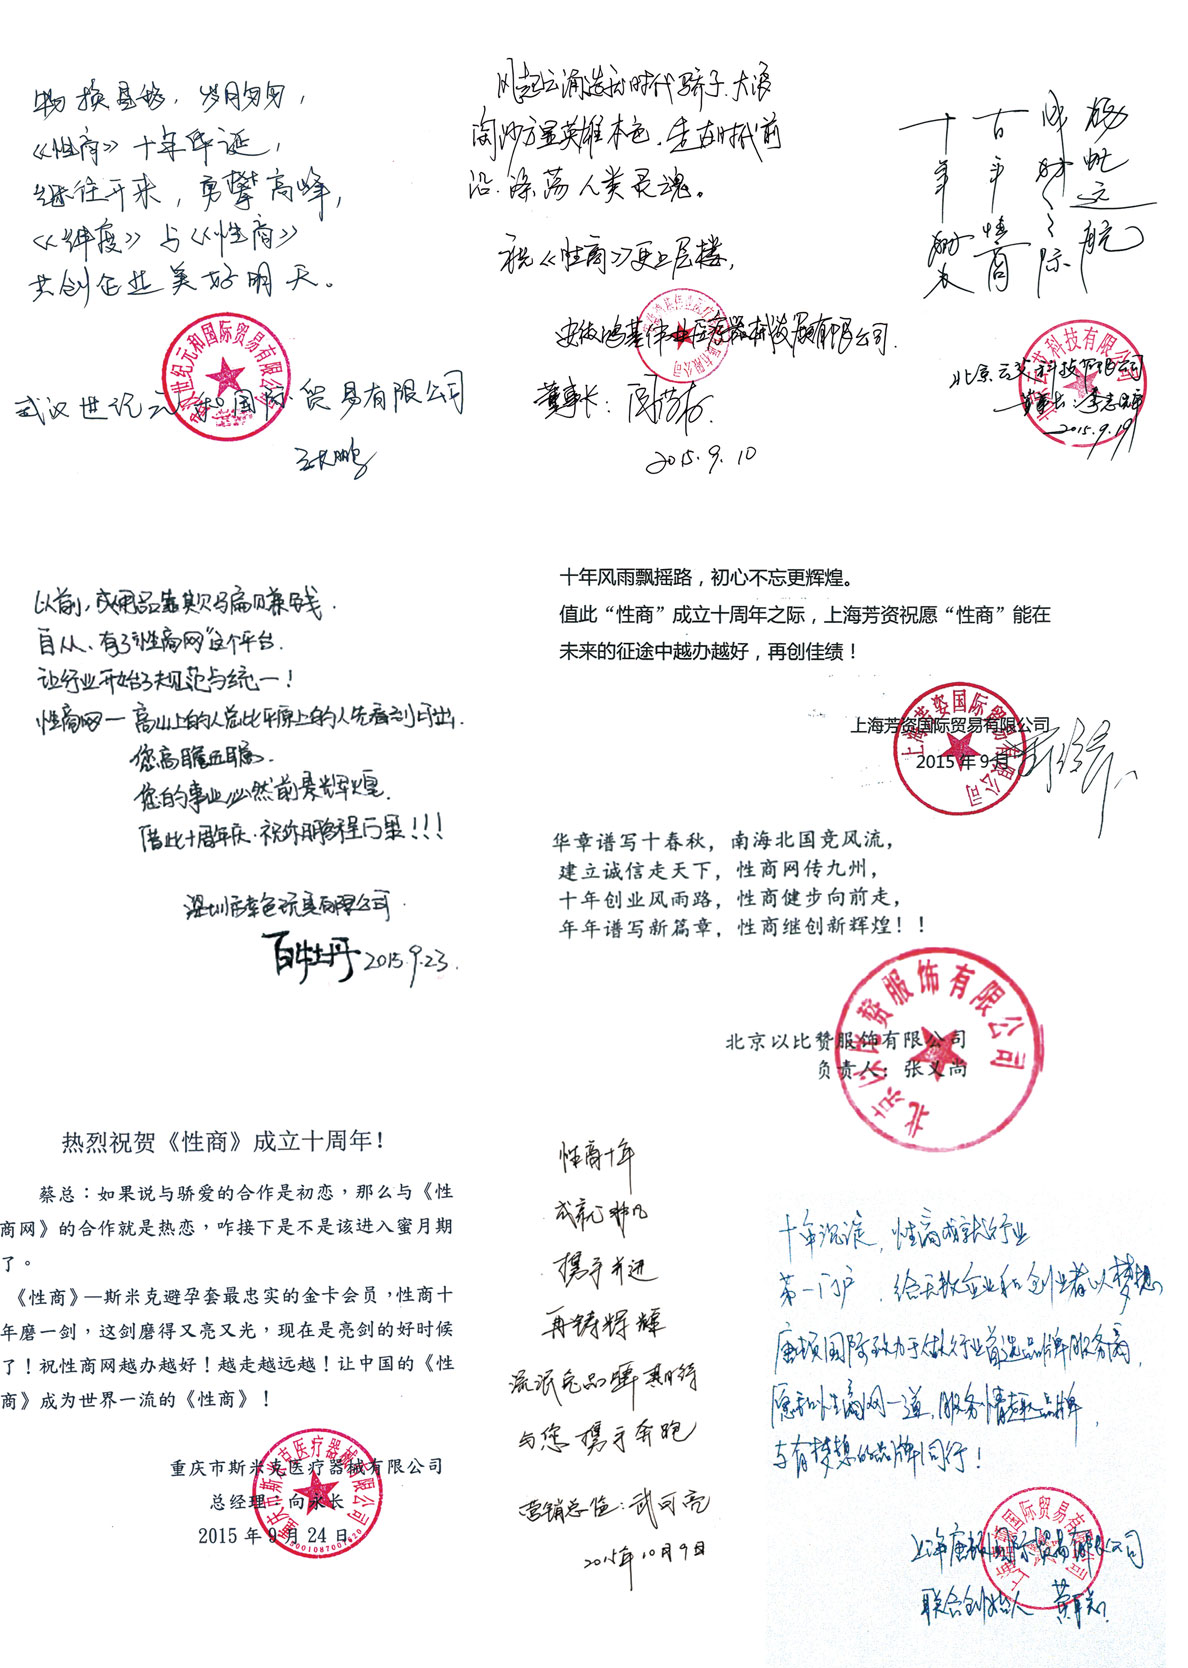 物换星移，岁月匆匆，
《性商》十年华诞，
继往开来，勇攀高峰，
《纬度》与《性商》
共创企业美好明天。
武汉世纪元和国际贸易有限公司
风起云涌造就时代骄子.大浪
淘沙方显英雄本色.走在时代前
沿.涤荡人类灵魂。
祝《性商》更上层楼，
董事长：
2015.9.10
扬帆远航
成功之际
百年性商
十年
北京云艾科技有限公司
董事长：李志辉
2015.9.19
以前，成用品靠欺骗赚钱.
自从、有了“性商网”这个平台.
让行业开始了规范与统一！
性商网一高山上的人总比平原上的人先看到日出.
您高瞻远瞩.
您的事业必然前景辉煌.
借此十周年庆.祝你鹏程万里！！！
深圳市幸色玩具有限公司.
百牡丹 2015.9.23.
十年风雨飘摇路，初心不忘更辉煌。
值此“性商”成立十周年之际，上海芳资祝愿“性商”能在
未来的征途中越办越好，再创佳绩！
上海芳资国际贸易有限公司
2015年9月
华章谱写十春秋，南海北国竞风流，
建立诚信走天下，性商网传九州，
十年创业风雨路，性商健步向前走，
年年谱写新篇章，性商继创新辉煌！！
北京以比赞服饰有限公司
负责人：张义尚
热烈祝贺《性商》成立十周年！
蔡总：如果说与骄爱的合作是初恋，那么与《性
商网》的合作就是热恋，咋接下是不是该进入蜜月期
了。
《性商》—斯米克避孕套最忠实的金卡会员，性商十
年磨一剑，这剑磨得又亮又光，现在是亮剑的好时候
了！祝性商网越办越好！越走越远越！让中国的《性
商》成为世界一流的《性商》！
重庆市斯米克医疗器械有限公司
总经理：向永长
2015年9月24日
性商十年
成就非凡
携手并进
再铸辉煌
流派无品牌期待
与您携手奔跑
营销总值：武可亮
2015年10月9日
十年沉淀，性商成就行业
第一门户.给无数企业和创业者以梦想
唐顿国际致力于做行业首选品牌服务商，
愿和性商网一道，服务情趣品牌，
与有梦想的品牌同行！
上海唐顿国际贸易有限公司
联合创始人